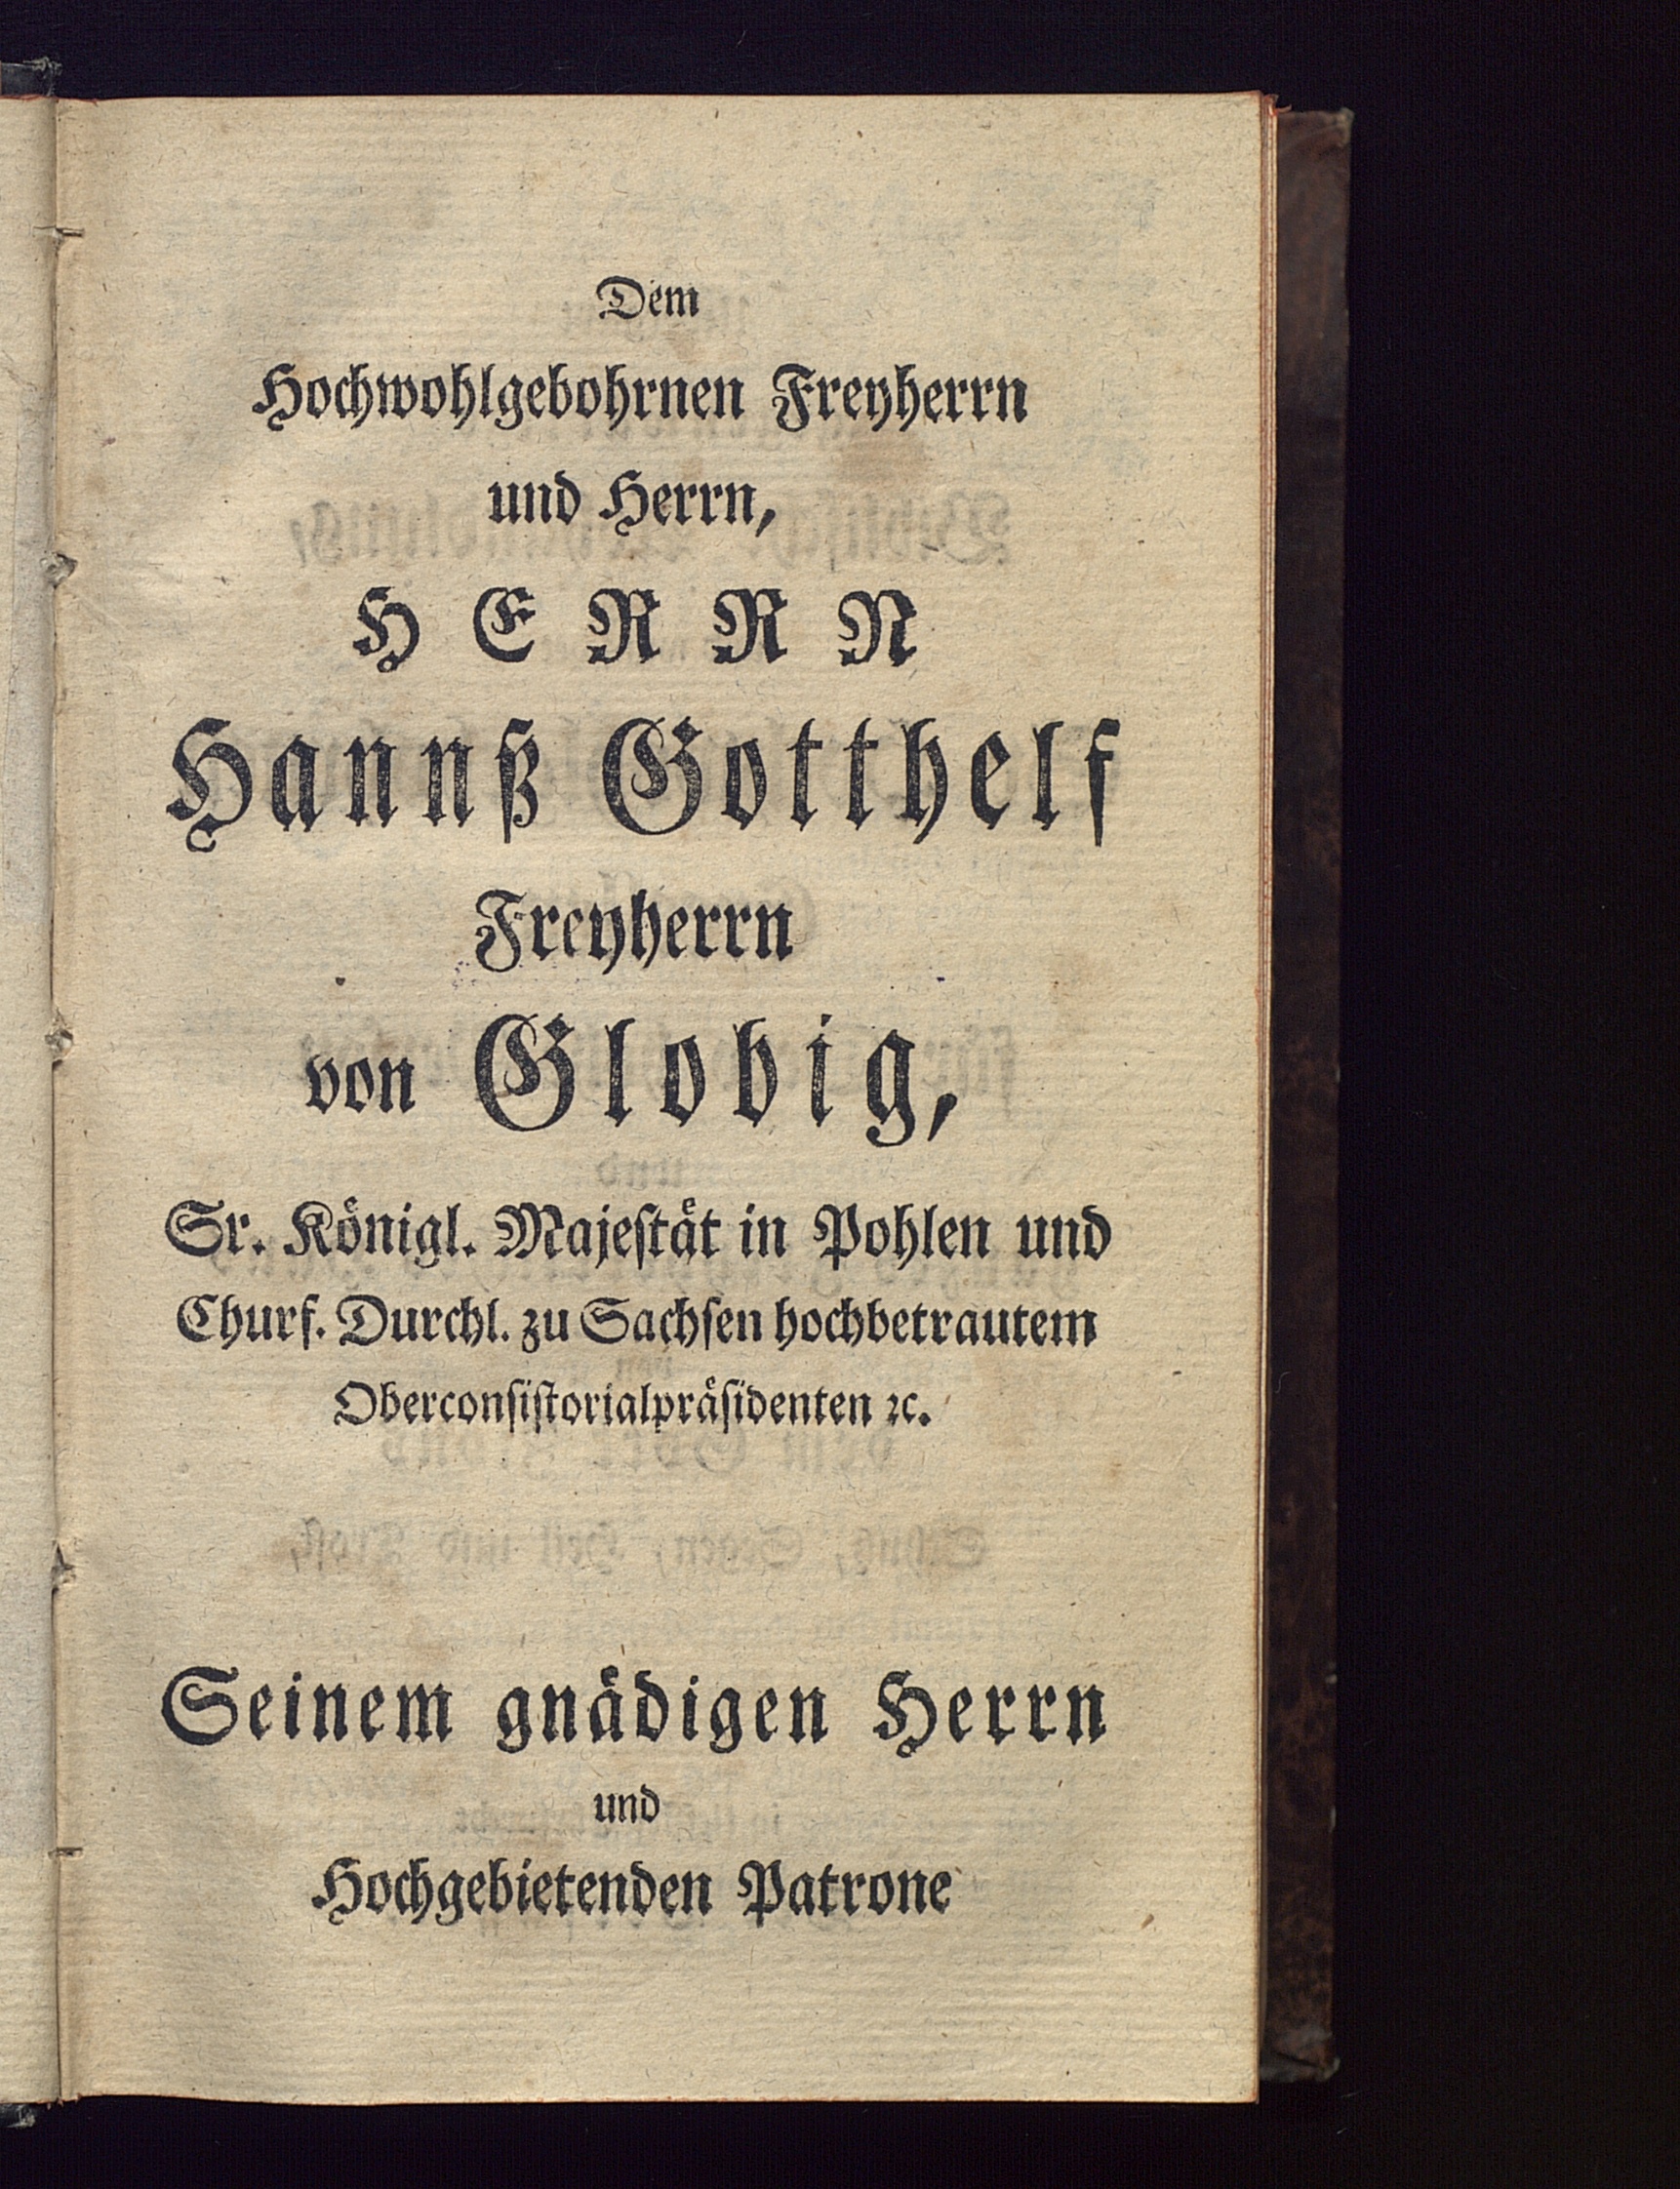 Dem
Hochwohlgebohrnen Freyherrn
und Herrn,
HERRN
Hannß Gotthelf
Freyherrn
von Globig,
Sr. Königl. Majeſtät in Pohlen und
Churf. Durchl. zu Sachſen hochbetrautem
Oberconſiſtorialpräſidenten ꝛc.
Seinem gnädigen Herrn
und
Hochgebietenden Patrone